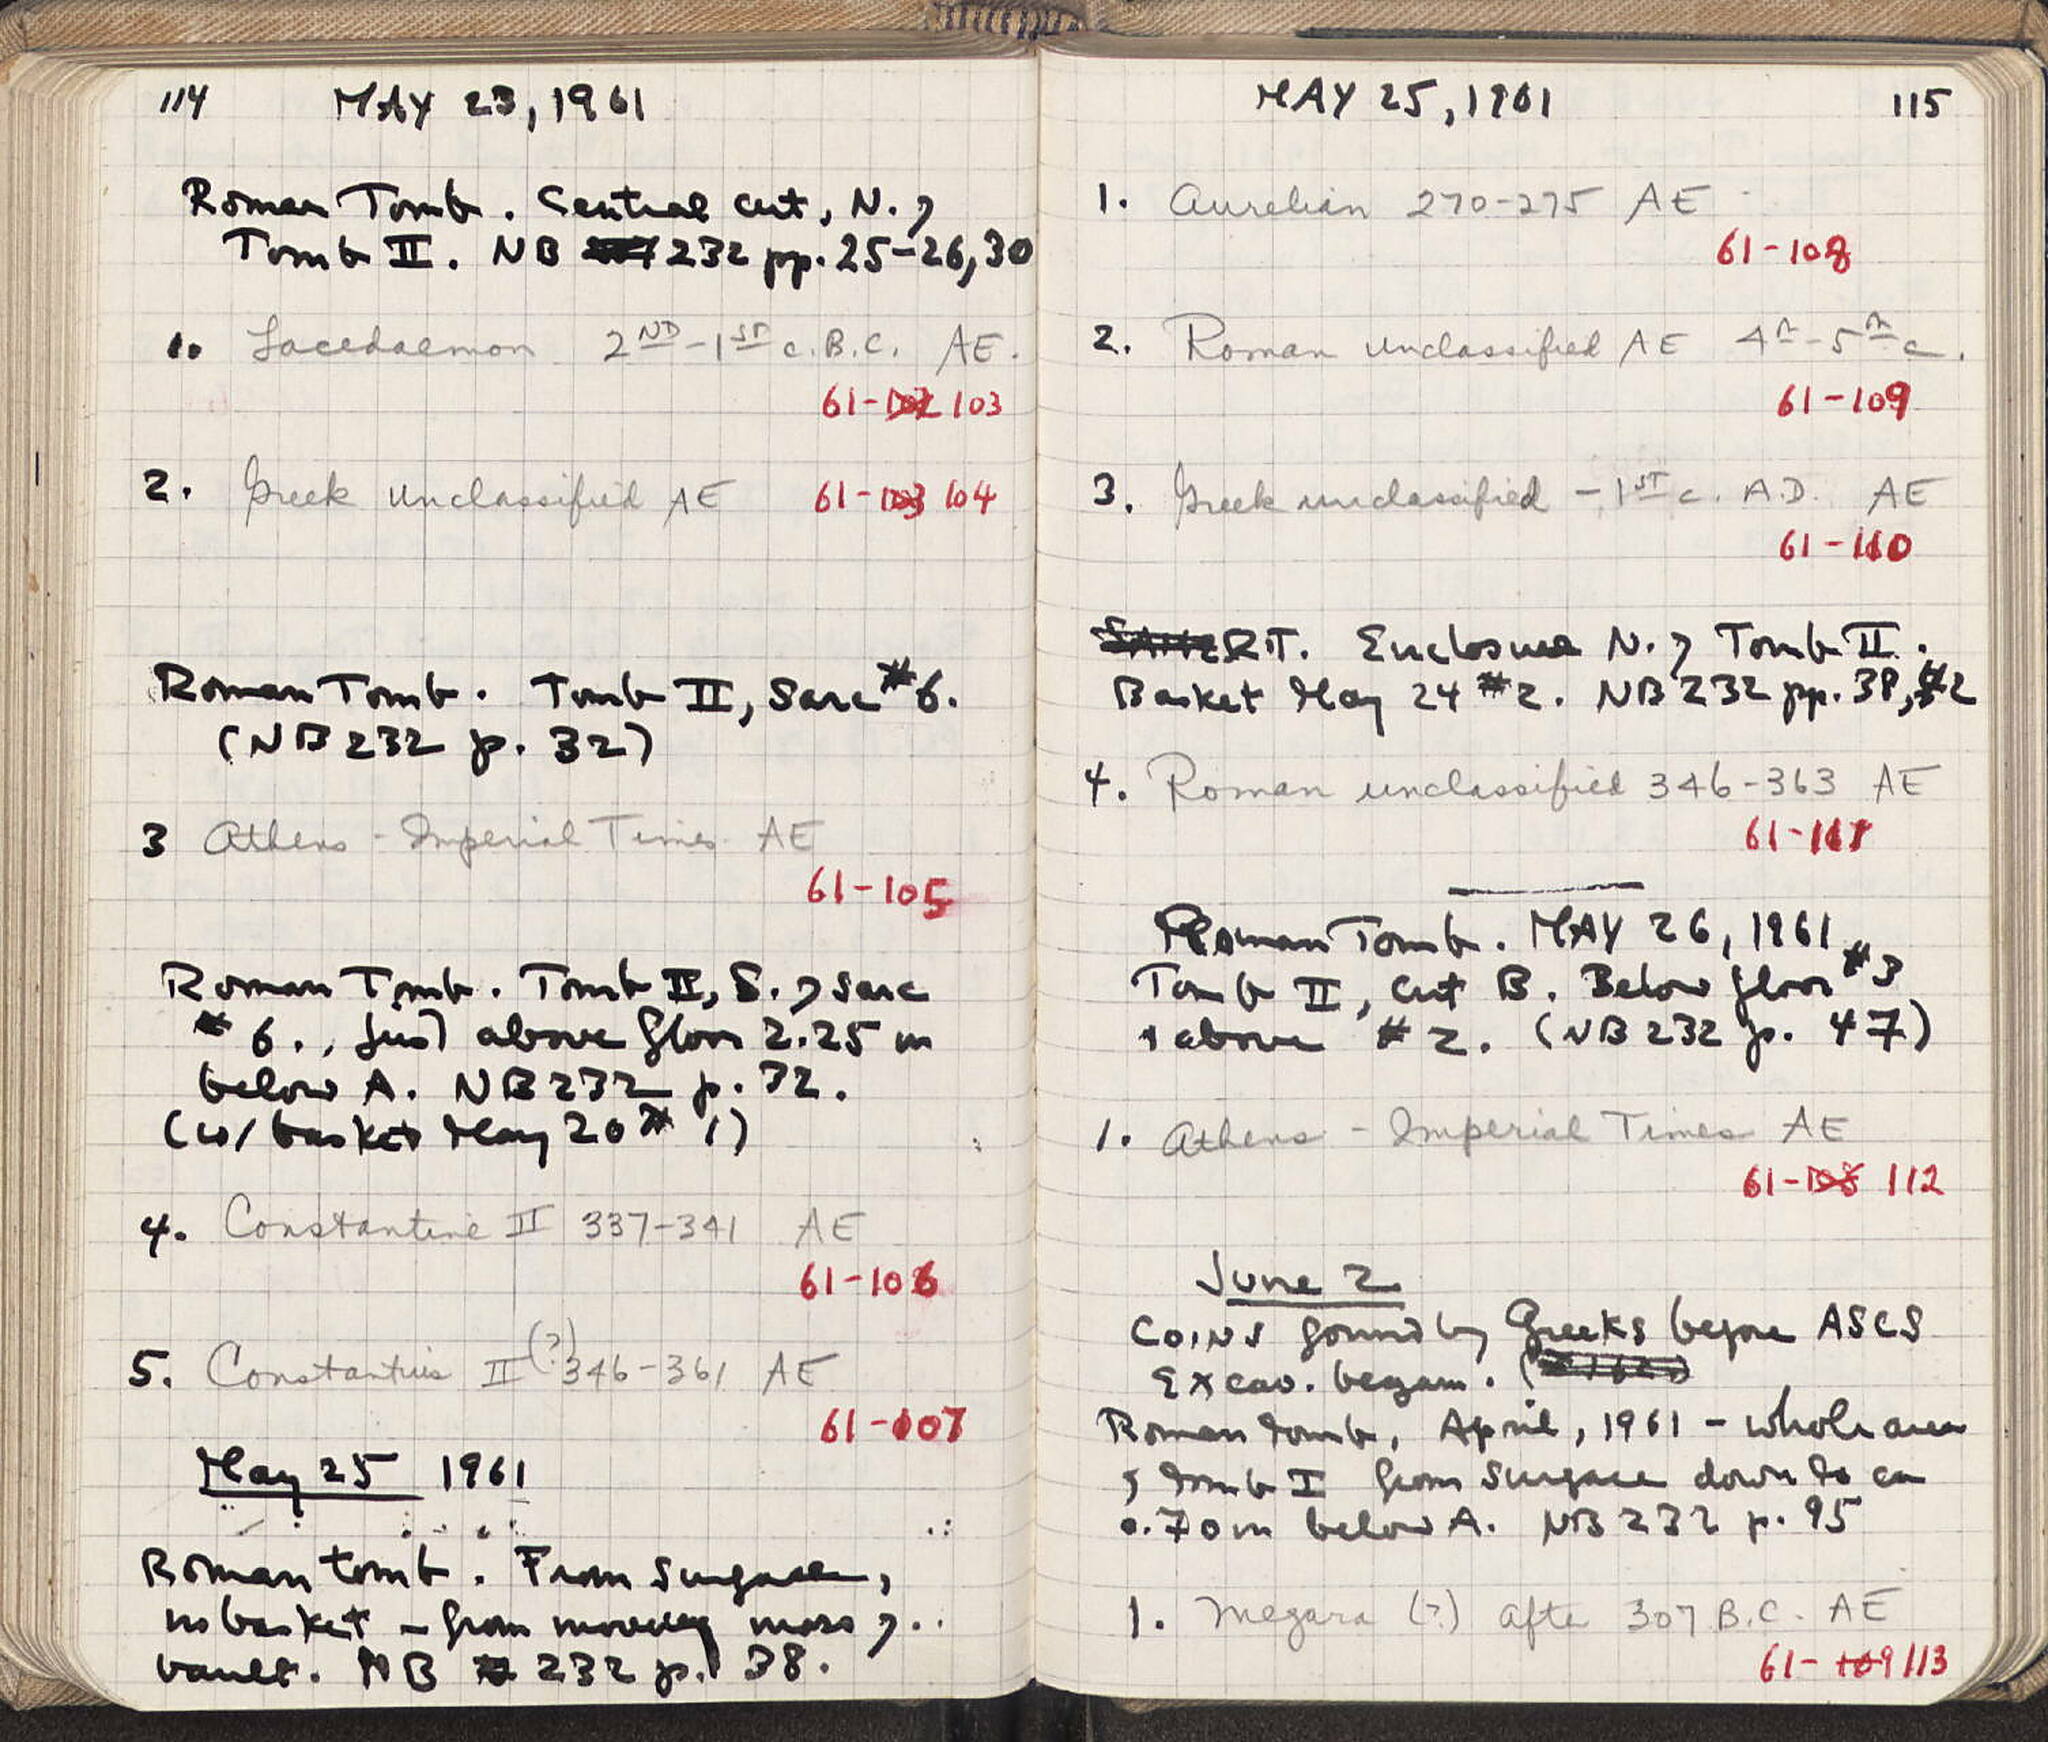 114 MAY 23, 1961
Roman Tomb. Central cut, N. of
Tomb II. NB 232 pp. 25-26, 30
1. Lacedaemon 2ND-1ST c. B.C. AE.
61-102 103
2. Greek unclassified AE 61-103 104
Roman Tomb. Tomb II, Sarc #6.
(NB 232 p. 32)
3 Athens - Imperial Times AE
61-105
Roman Tomb. Tomb II, S. of Sarc
#6., just above floor 2.25 m
below A. NB 232 p. 32.
(w/ basket May 20 #1)
4. Constantine II 337-341 AE
61-106
5. Constantius II (?) 346-361 AE
61-107
May 25 1961
Roman tomb. From surface,
no basket - from moving mass of
vault. NB 232 p. 38.
MAY 25, 1961 115
1. Aurelian 270-275 AE
61-108
2. Roman unclassified AE 4th-5th c.
61-109
3. Greek unclassified - 1ST c. A.D. AE
61-110
R.T. Enclosure N. of Tomb II.
Basket May 24 #2. NB 232 pp. 38, 42
4. Roman unclassified 346-363 AE
61-111
Roman Tomb. MAY 26, 1961
Tomb II, cut B. Below floor #3
+ above #2. (NB 232 p. 47)
1. Athens - Imperial Times AE
61-108 112
June 2
COINS found by Greeks before ASCS
Excav. began.
Roman tomb, April, 1961 - whole area
of tomb I from surface down to ca
0.70m below A. NB 232 p. 95
1. Megara (?) after 307 B.C. AE
61-109 113